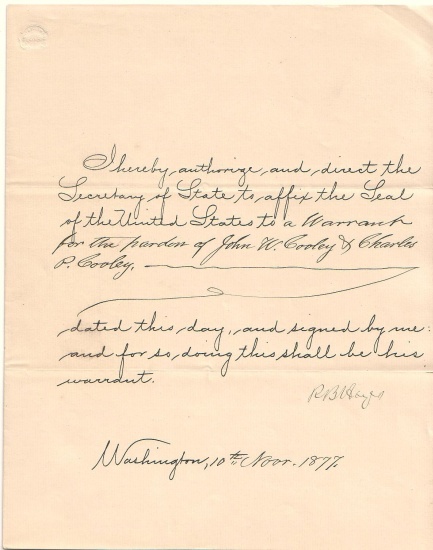 I hereby authorize and direct the
Secretary of State to affix the Seal
of the United States to a Warrant
for the pardon of John W. Cooley & Charles
P. Cooley,
dated this day, and signed by me:
and for so doing this shall be his
warrant.
R B Hayes
Washington, 10th Novr. 1877.